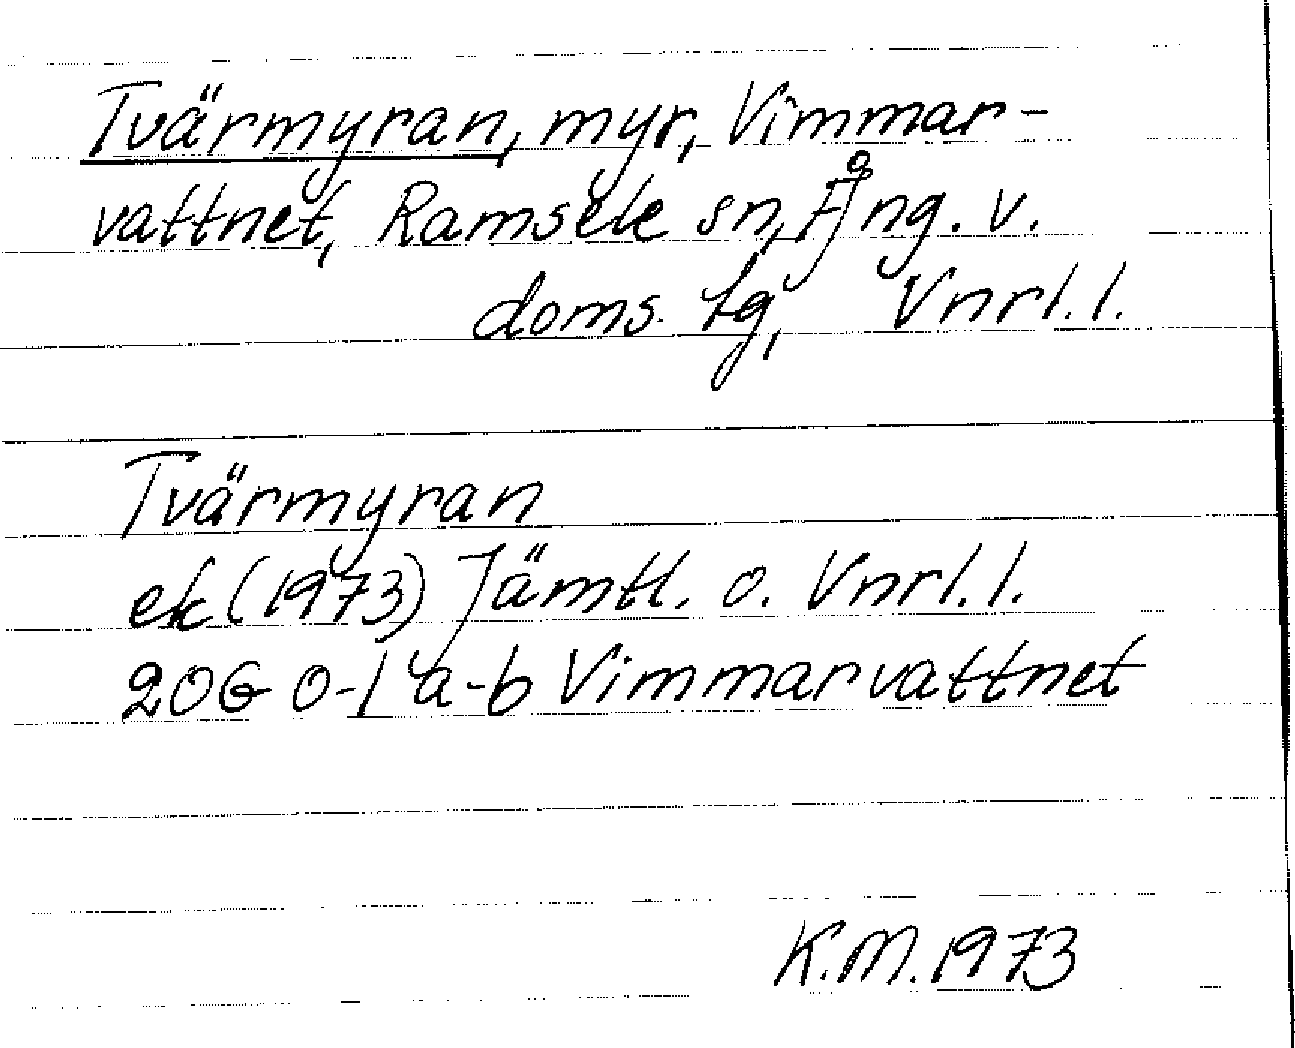 Tvärmyran, myr, Vimmar-
vattnet, Ramsele sn, Ång. v.
doms. tg, Vnrl. l.
Tvärmyran
ek (1973) Jämtl. o. Vnrl. l.
20G 0-1 a-b Vimmarvattnet
K.M. 1973